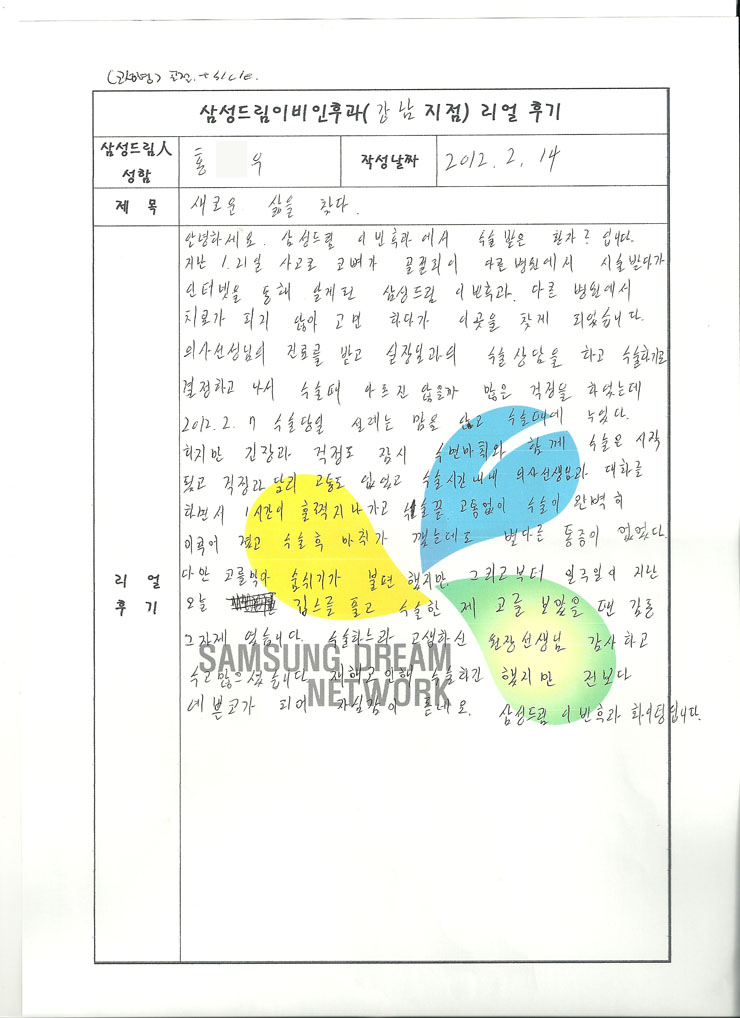 삼성드림이비인후과(강남 지점) 리얼 후기
삼성드림人 성함 홍 우 작성날짜 2012. 2. 14
제 목 새로운 삶을 찾다.
리 얼 후 기
안녕하세요. 삼성드림 이빈후과에서 수술받은 환자? 입니다.
지난 1.21일 사고로 코뼈가 골절되어 다른병원에서 시술받다가
인터넷을 통해 알게된 삼성드림 이빈후과. 다른 병원에서
치료가 되지 않아 고민 하다가 이곳을 찾게 되었습니다.
의사선성님의 진료를 받고 실장님과의 수술상담을 하고 수술하기로
결정하고 나서 수술때 아프진 않을까 많은 걱정을 하었는데
2012. 2. 7 수술당일 설레는 맘을 않고 수술대에 누었다.
하지만 긴장과 걱정도 잠시 수면마취와 함께 수술은 시작
됬고 걱정과 달리 고통도 없었고 수술시간내내 의사선생님과 대화를
하면서 1시간이 훌쩍지나가고 수술끝 고통없이 수술이 완벽히
수술후 마취가 깼는데도 별다른 통증이 없었다.
다만 코를막아 숨쉬기가 불편했지만. 그리고부터 일주일이 지난
오늘 깁스를 풀고 수술한 제 코를 보았을 땐 감동
그자체 였습니다. 수술하느라 고생하신 원장선생님 감사하고
수고많으셨습니다. 수술하긴 했지만 전보다
예쁜코가 되어 자심감이 드네요. 삼성드림 이빈후과 화이팅입니다.
SAMSUNG DREAM
NETWORK